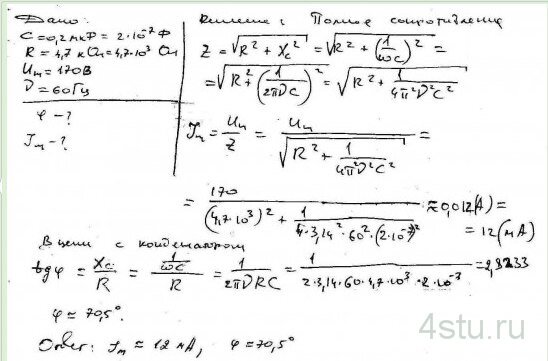 Дано:
C = 0,2 мкФ = 2·10⁻⁷ Ф
R = 4,7 кОм = 4,7·10³ Ом
Uₘ = 170 В
ν = 60 Гц
φ - ?
Jₘ - ?
Решение: Полное сопротивление
Z = √(R² + X_c²) = √(R² + (1/ωC)²) =
= √(R² + (1/2πνC)²) = √(R² + 1/4π²ν²C²)
Jₘ = Uₘ/Z = Uₘ/√(R² + 1/4π²ν²C²) =
= 170/((4,7·10³)² + 1/4·3,14²·60²·(2·10⁻⁷)²) ≈ 0,012 (A) =
= 12 (мА)
В цепи с конденсатором
tgφ = X_c/R = (1/ωC)/R = 1/2πνRC = 1/2·3,14·60·4,7·10³·2·10⁻³ = 2,8233
φ ≈ 70,5°.
Ответ: Jₘ ≈ 12 мА, φ ≈ 70,5°
4stu.ru